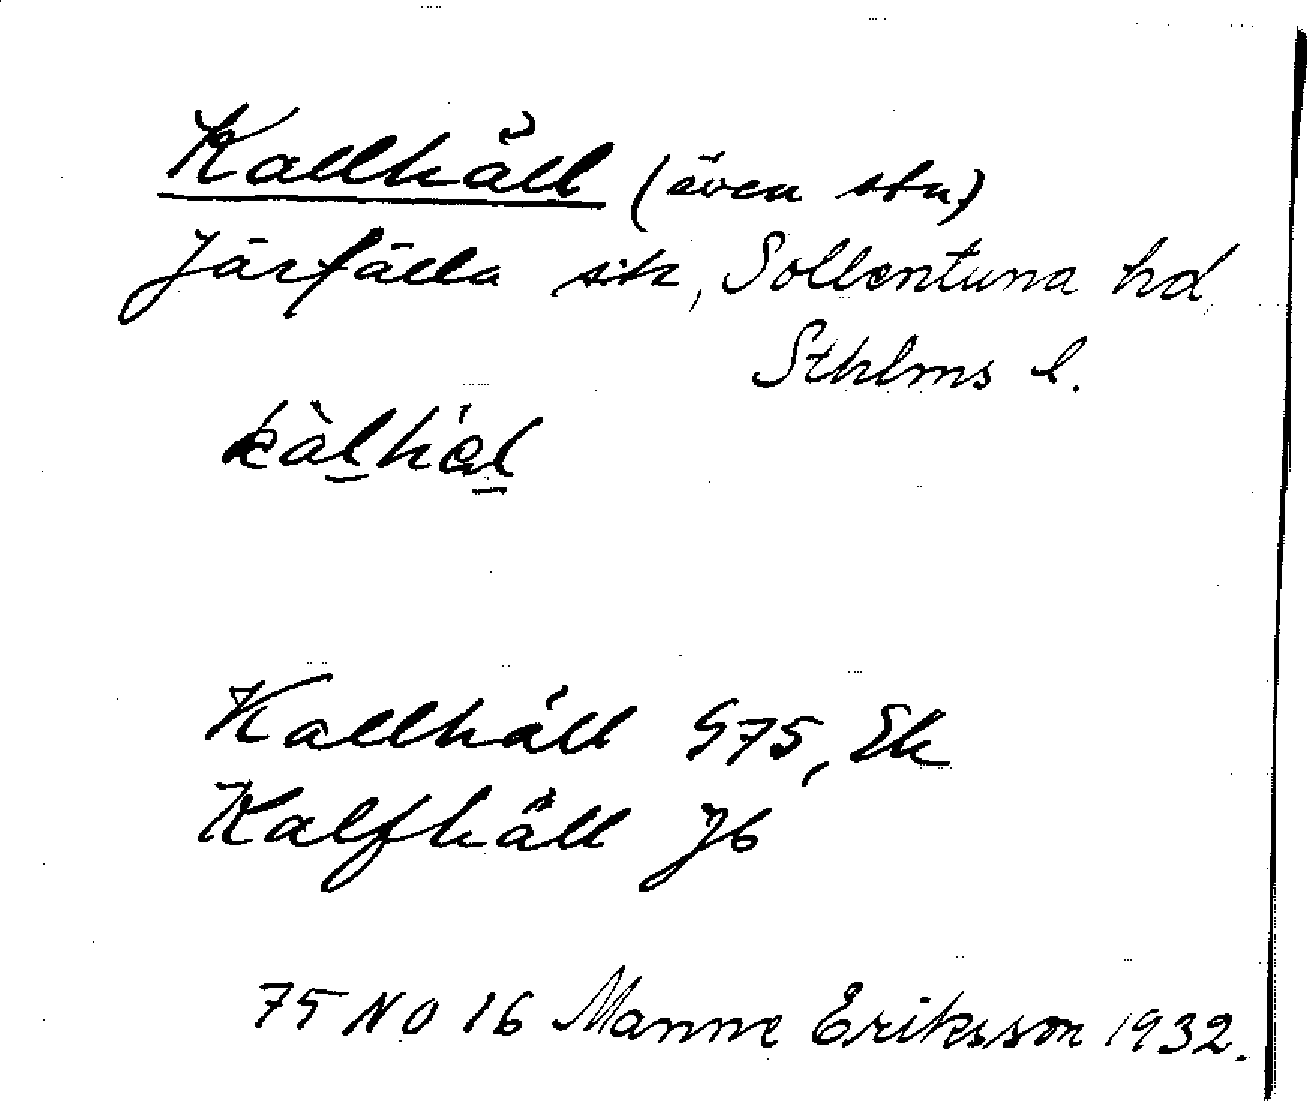 Kallhäll (även stn)
Järfälla sn, Sollentuna hd
Sthlms l.
kàlhäl
Kallhäll G75, Ek
Kalfhäll Jb
75 NO 16 Manne Eriksson 1932.